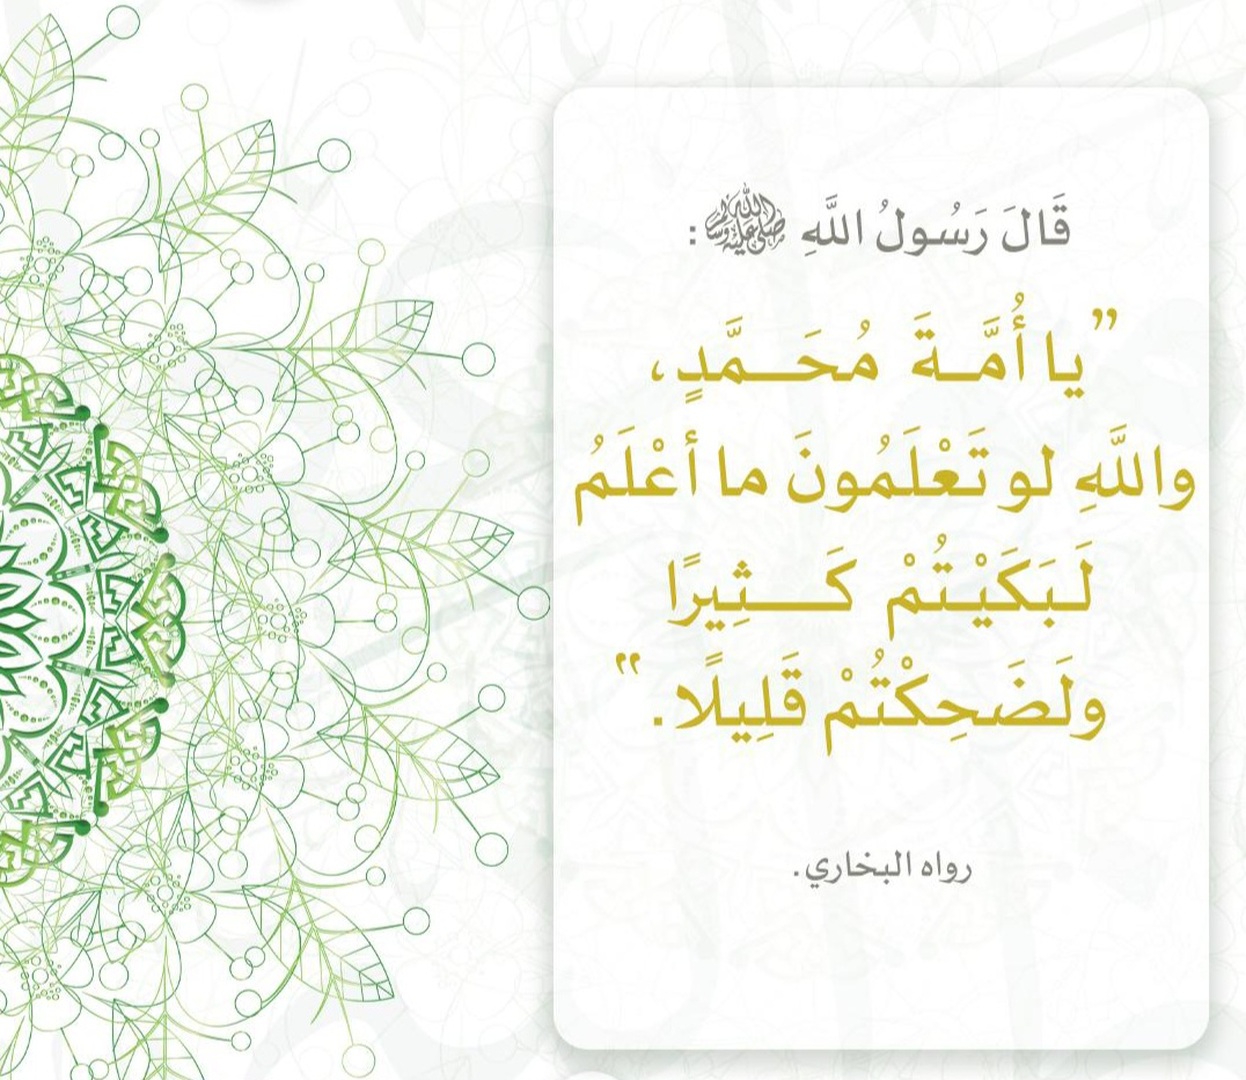 قَالَ رَسُولُ اللَّهِ ﷺ:
”يا أُمَّةَ مُحَمَّدٍ،
واللَّهِ لو تَعْلَمُونَ ما أعْلَمُ
لَبَكَيْتُمْ كَثِيرًا
ولَضَحِكْتُمْ قَلِيلًا.”
رواه البخاري.